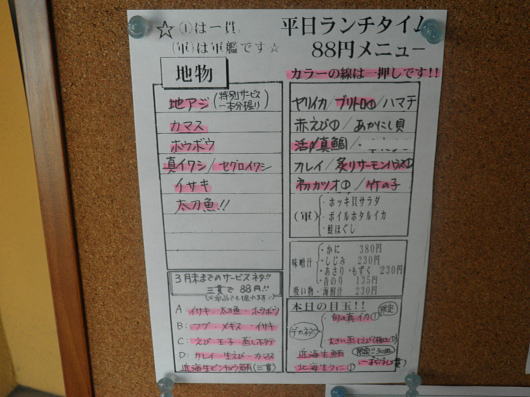 ☆①は一貫、
(軍)は軍艦です☆
平日ランチタイム
88円メニュー
カラーの線は一押しです!!
地物
地アジ(特別サービス
一本分握り)
カマス
ホウボウ
真イワシ/セグロイワシ
イサキ
太刀魚!!
ヤリイカ/ブリトロ①/ハマチ
赤えび①/あかにし貝
活〆真鯛/
カレイ/炙りサーモンハラス①
初カツオ①/竹の子
(軍)
・ホッキ貝サラダ
・ボイルホタルイカ
・鮭ほぐし
味噌汁
・かに 380円
・しじみ 230円
・あさり・もずく 230円
・青のり 135円
吸い物・海鮮汁 230円
3月末までのサービスネタ!!
三貫で 88円!!
A:イサキ・太刀魚・ホウボウ
B:ツブ・メギス・イサキ
C:えび・玉子・蒸しホタテ
D:カレイ・生えび・カマス
近海生ビンチョウ鮪(三貫)
本日の目玉!!
限定
(デカネタ)
近海生鮪
北海生ウニ①